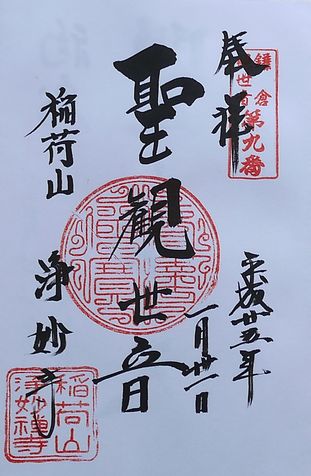 奉拝
鎌倉
観世音
第九番
聖観世音
平成廿五年
一月廿一日
稲荷山
浄妙寺
稲荷山
浄妙禅寺